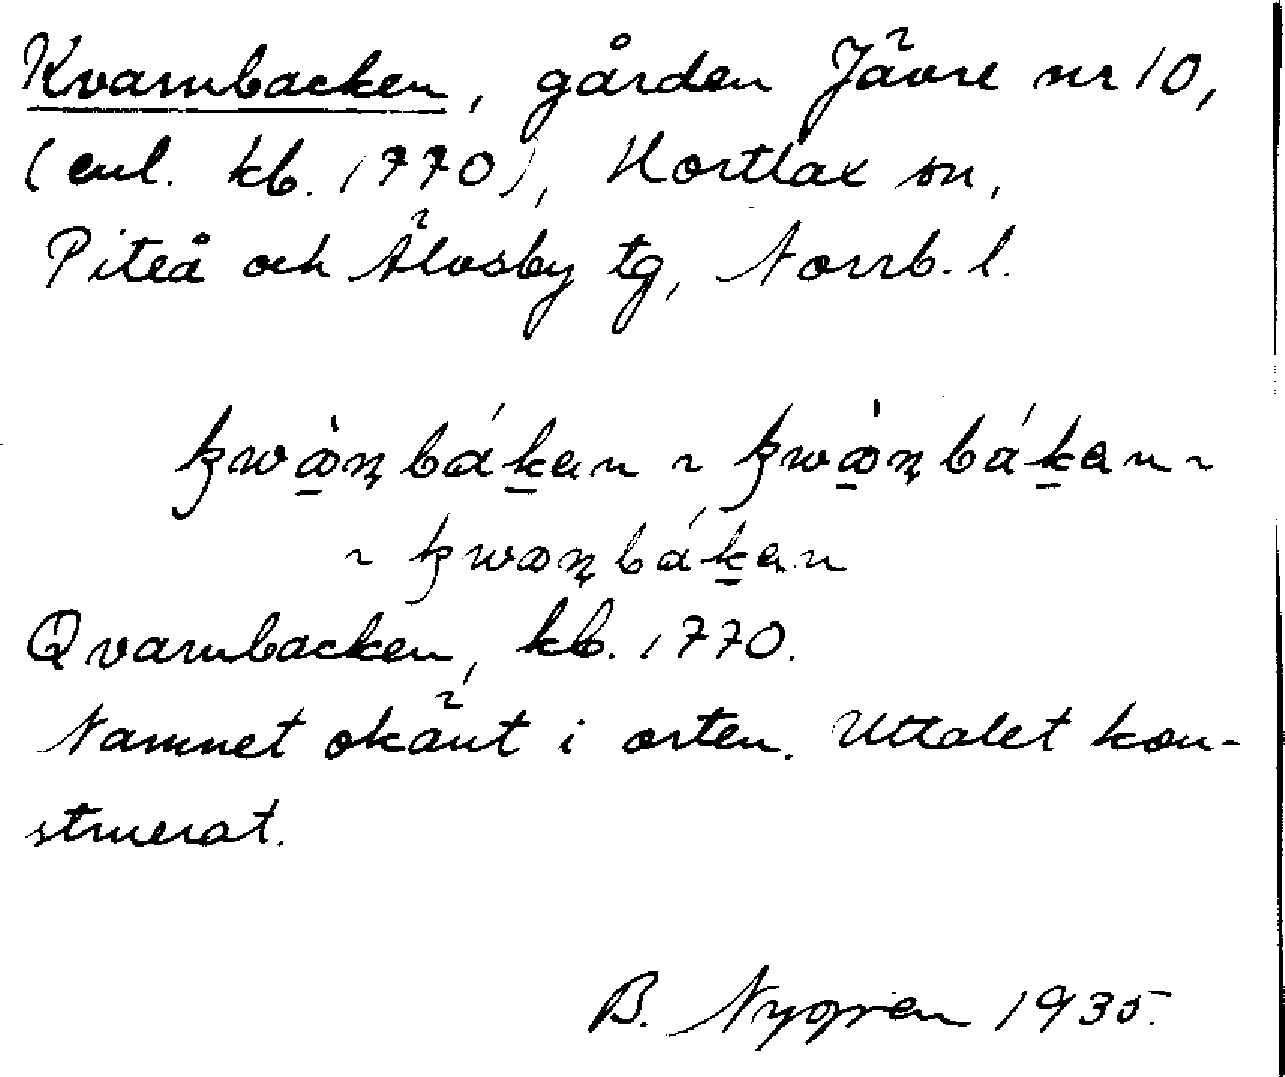 Kvarnbacken, gården Jävre nr 10,
(enl. kb. 1770), Hortlax sn,
Piteå och Älvsby tg, Norrb. l.
kwæ̀ṇbákan ~ kwæ̀ṇbákan ~
~ kwæṇbákan
Qvarnbacken, kb. 1770.
Namnet okänt i orten. Uttalet kon-
struerat.
B. Nygren 1935.